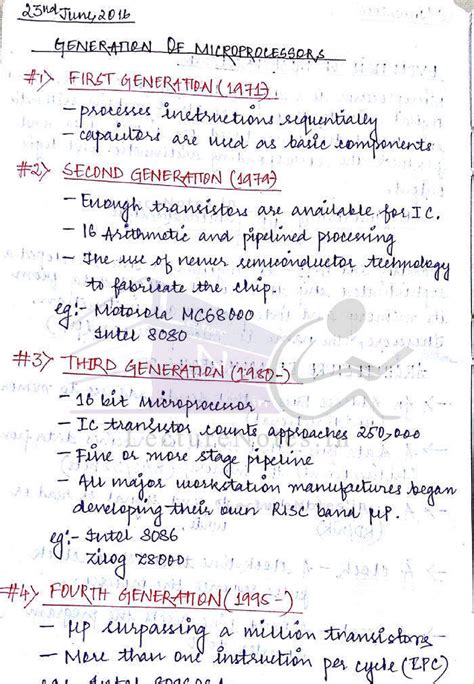 23nd June, 2016
GENERATION OF MICROPROCESSORS
#1) FIRST GENERATION (1971).
- processes instructions sequentially
- capacitors are used as basic components
#2) SECOND GENERATION (1979)
- Enough transistors are available for IC.
- 16 Arithmetic and pipelined processing
- The use of newer semiconductor technology
to fabricate the chip.
eg:- Motorola MC68000
Intel 8080
#3) THIRD GENERATION (1980-)
- 16 bit microprocessor
- IC transistor counts approaches 250,000
- Five or more stage pipeline
- All major workstation manufactures began
developing their own RISC band μP.
eg:- Intel 8086
Zilog Z8000
#4) FOURTH GENERATION (1995-)
- μP surpassing a million transistors
- More than one instruction per cycle (IPC)
eg: Intel
LectureNotes.in